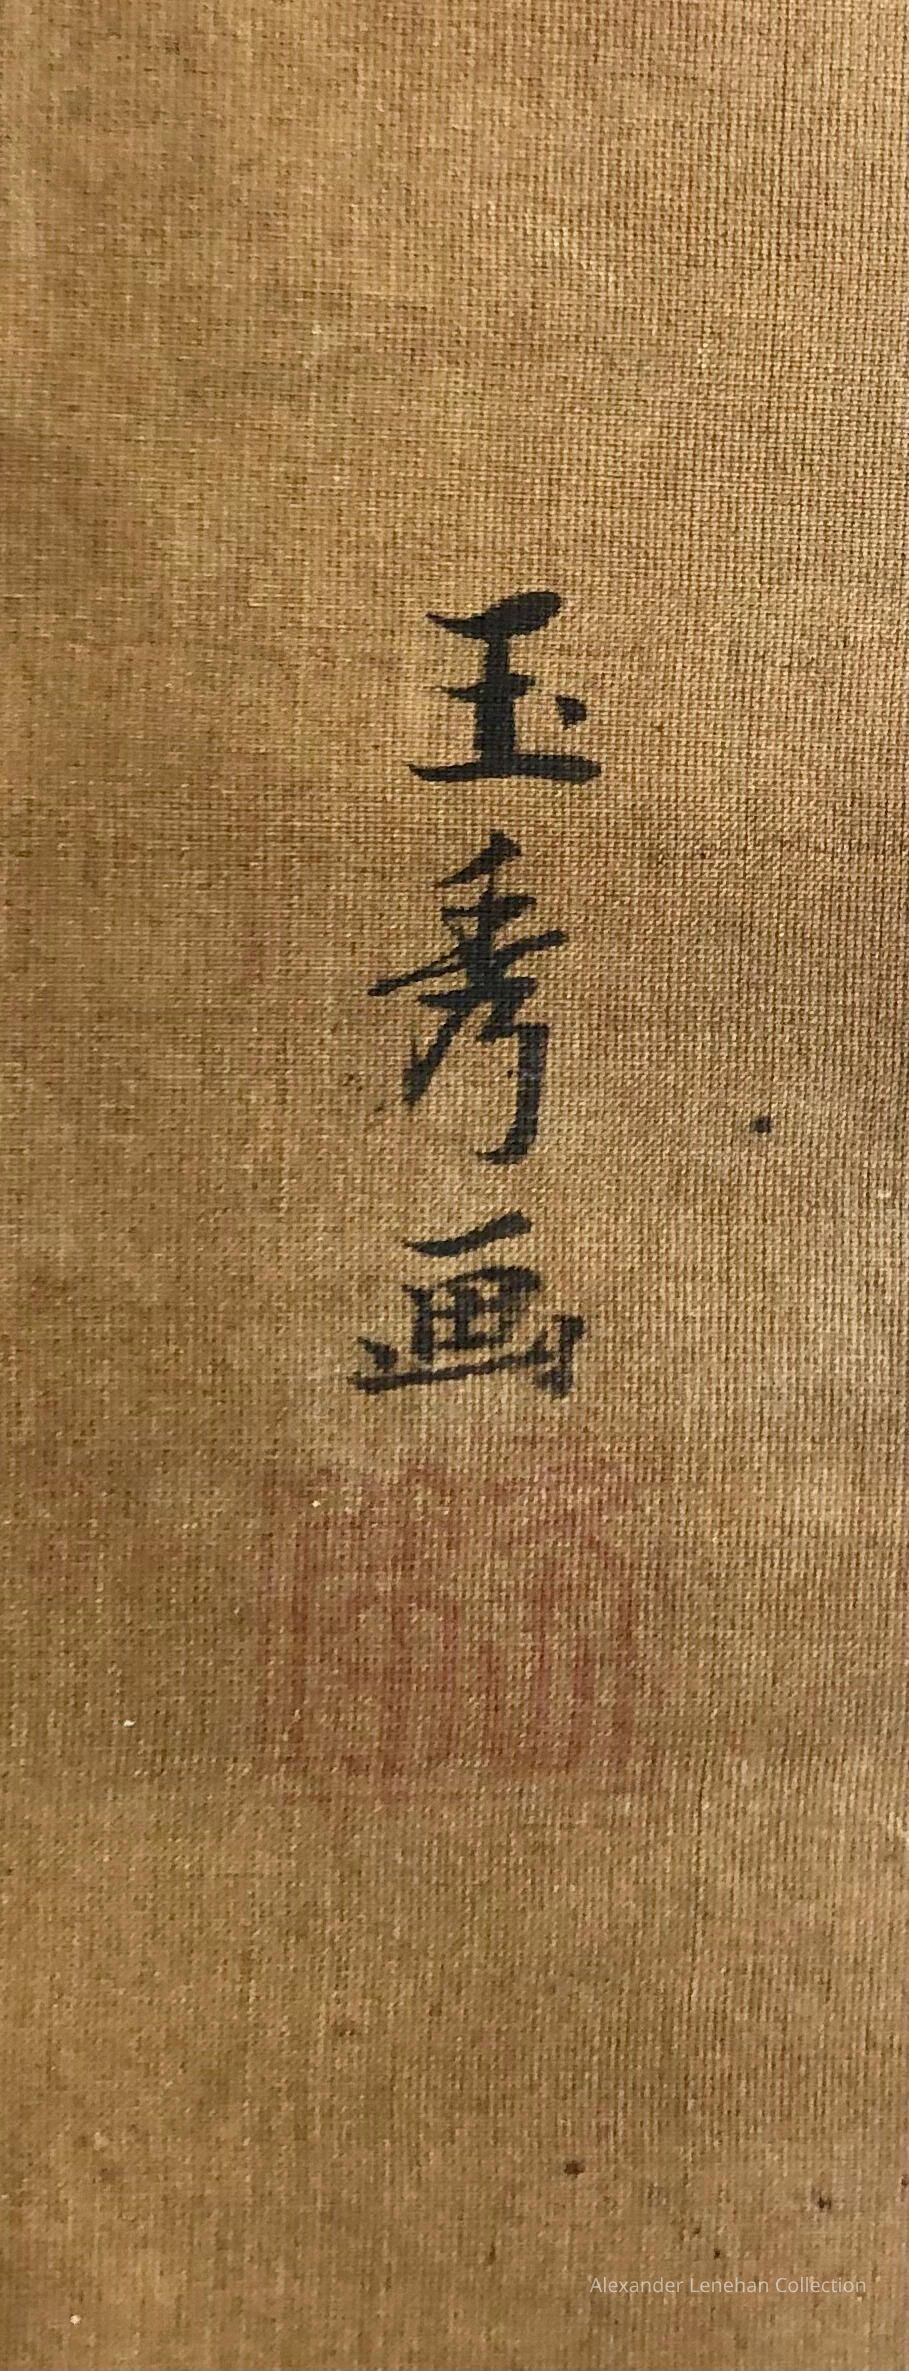 玉秀画
Alexander Lenehan Collection